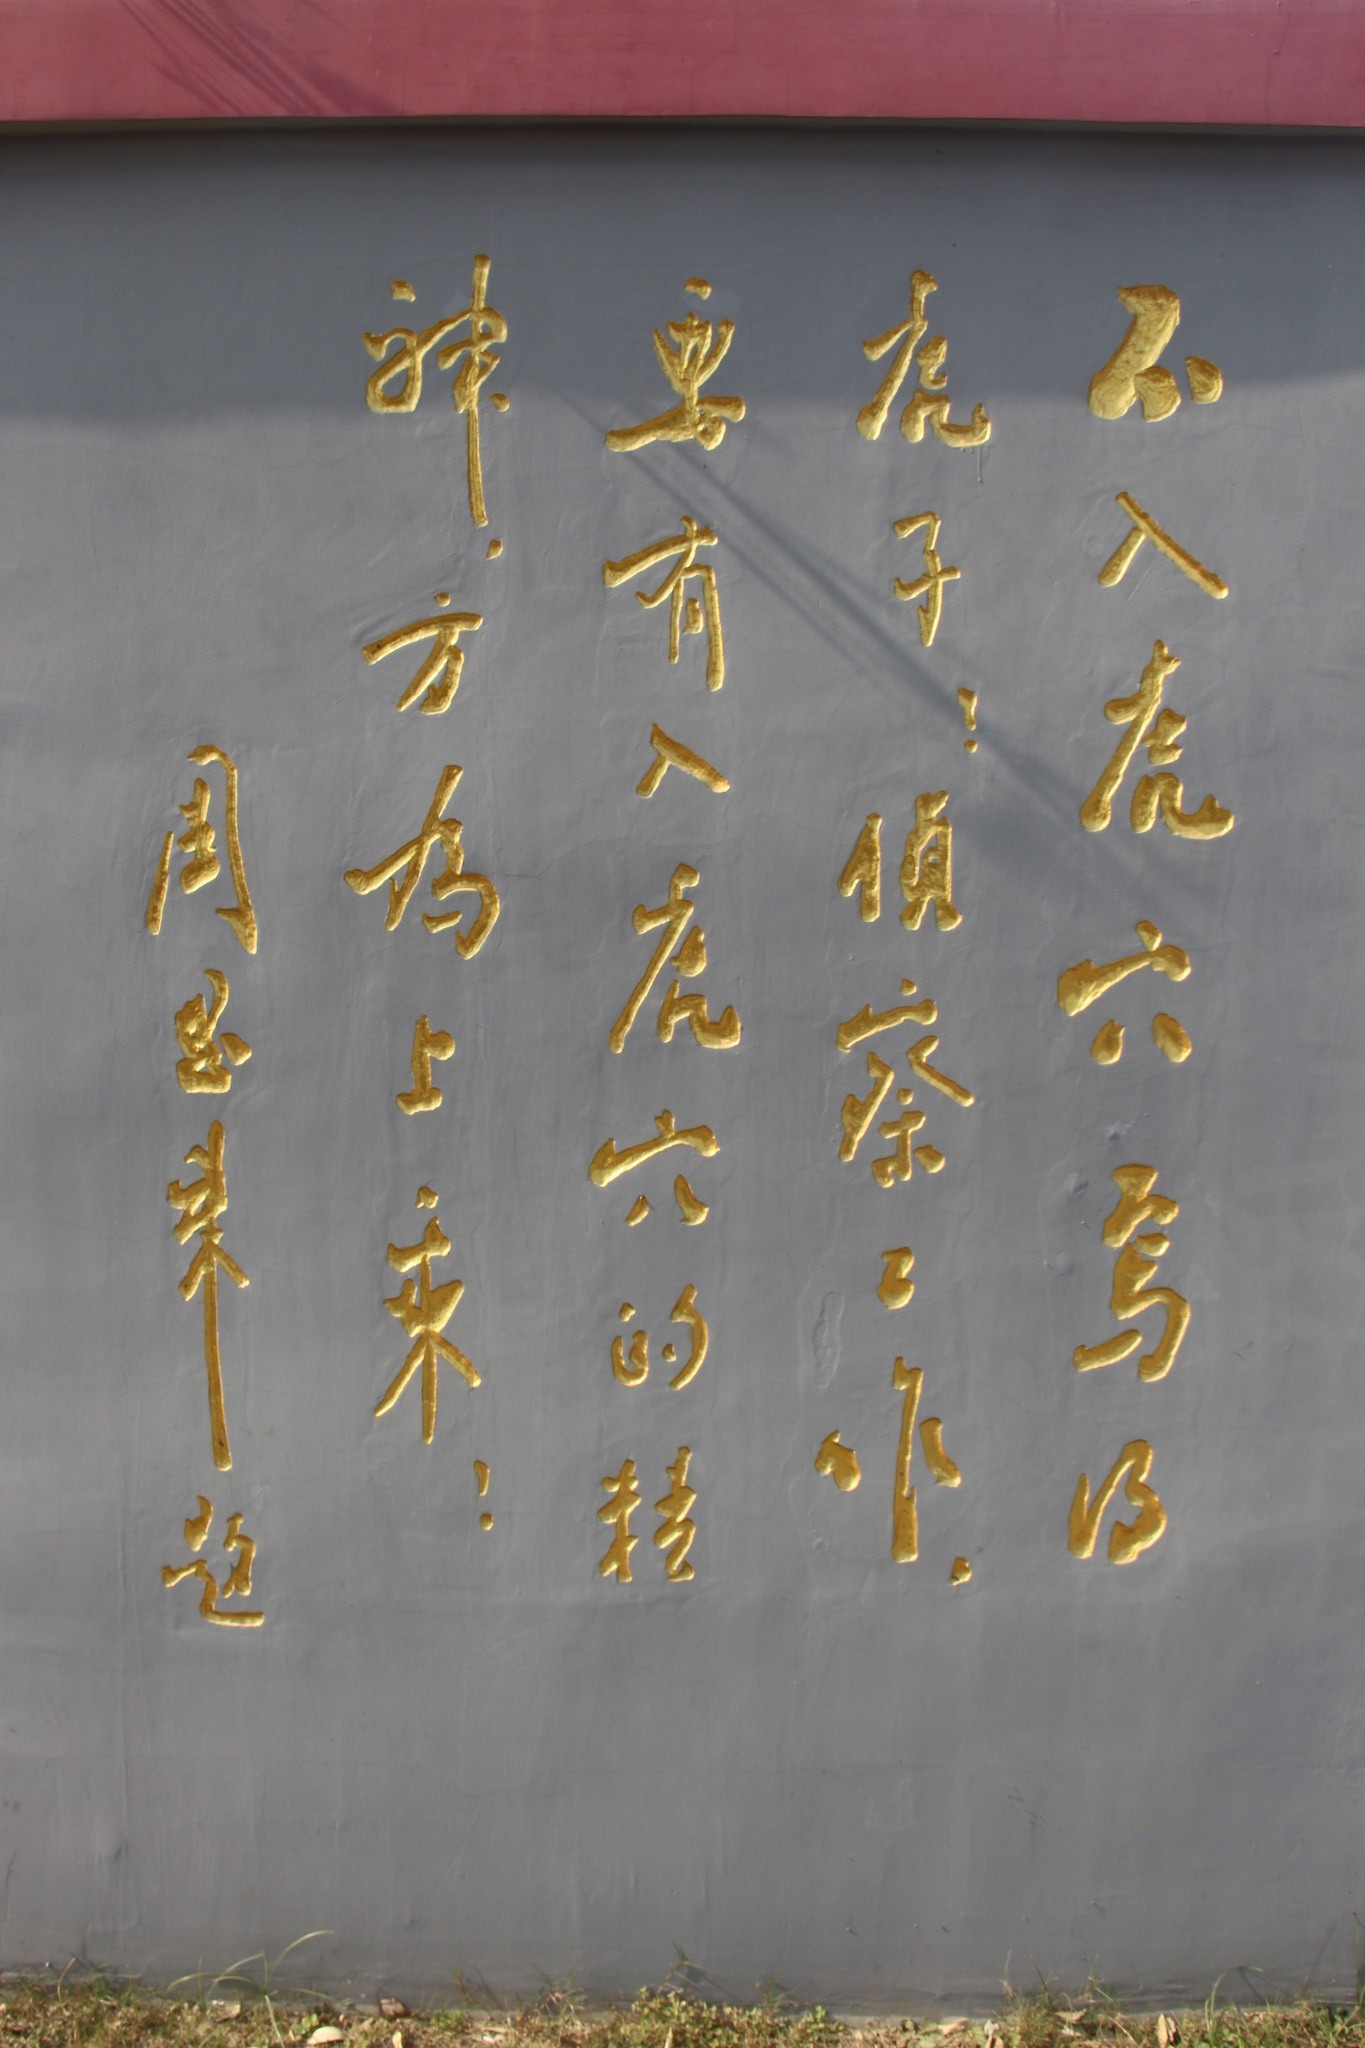 不入虎穴焉得
虎子！偵察工作．
要有入虎穴的精
神．方為上乘！
周恩來題